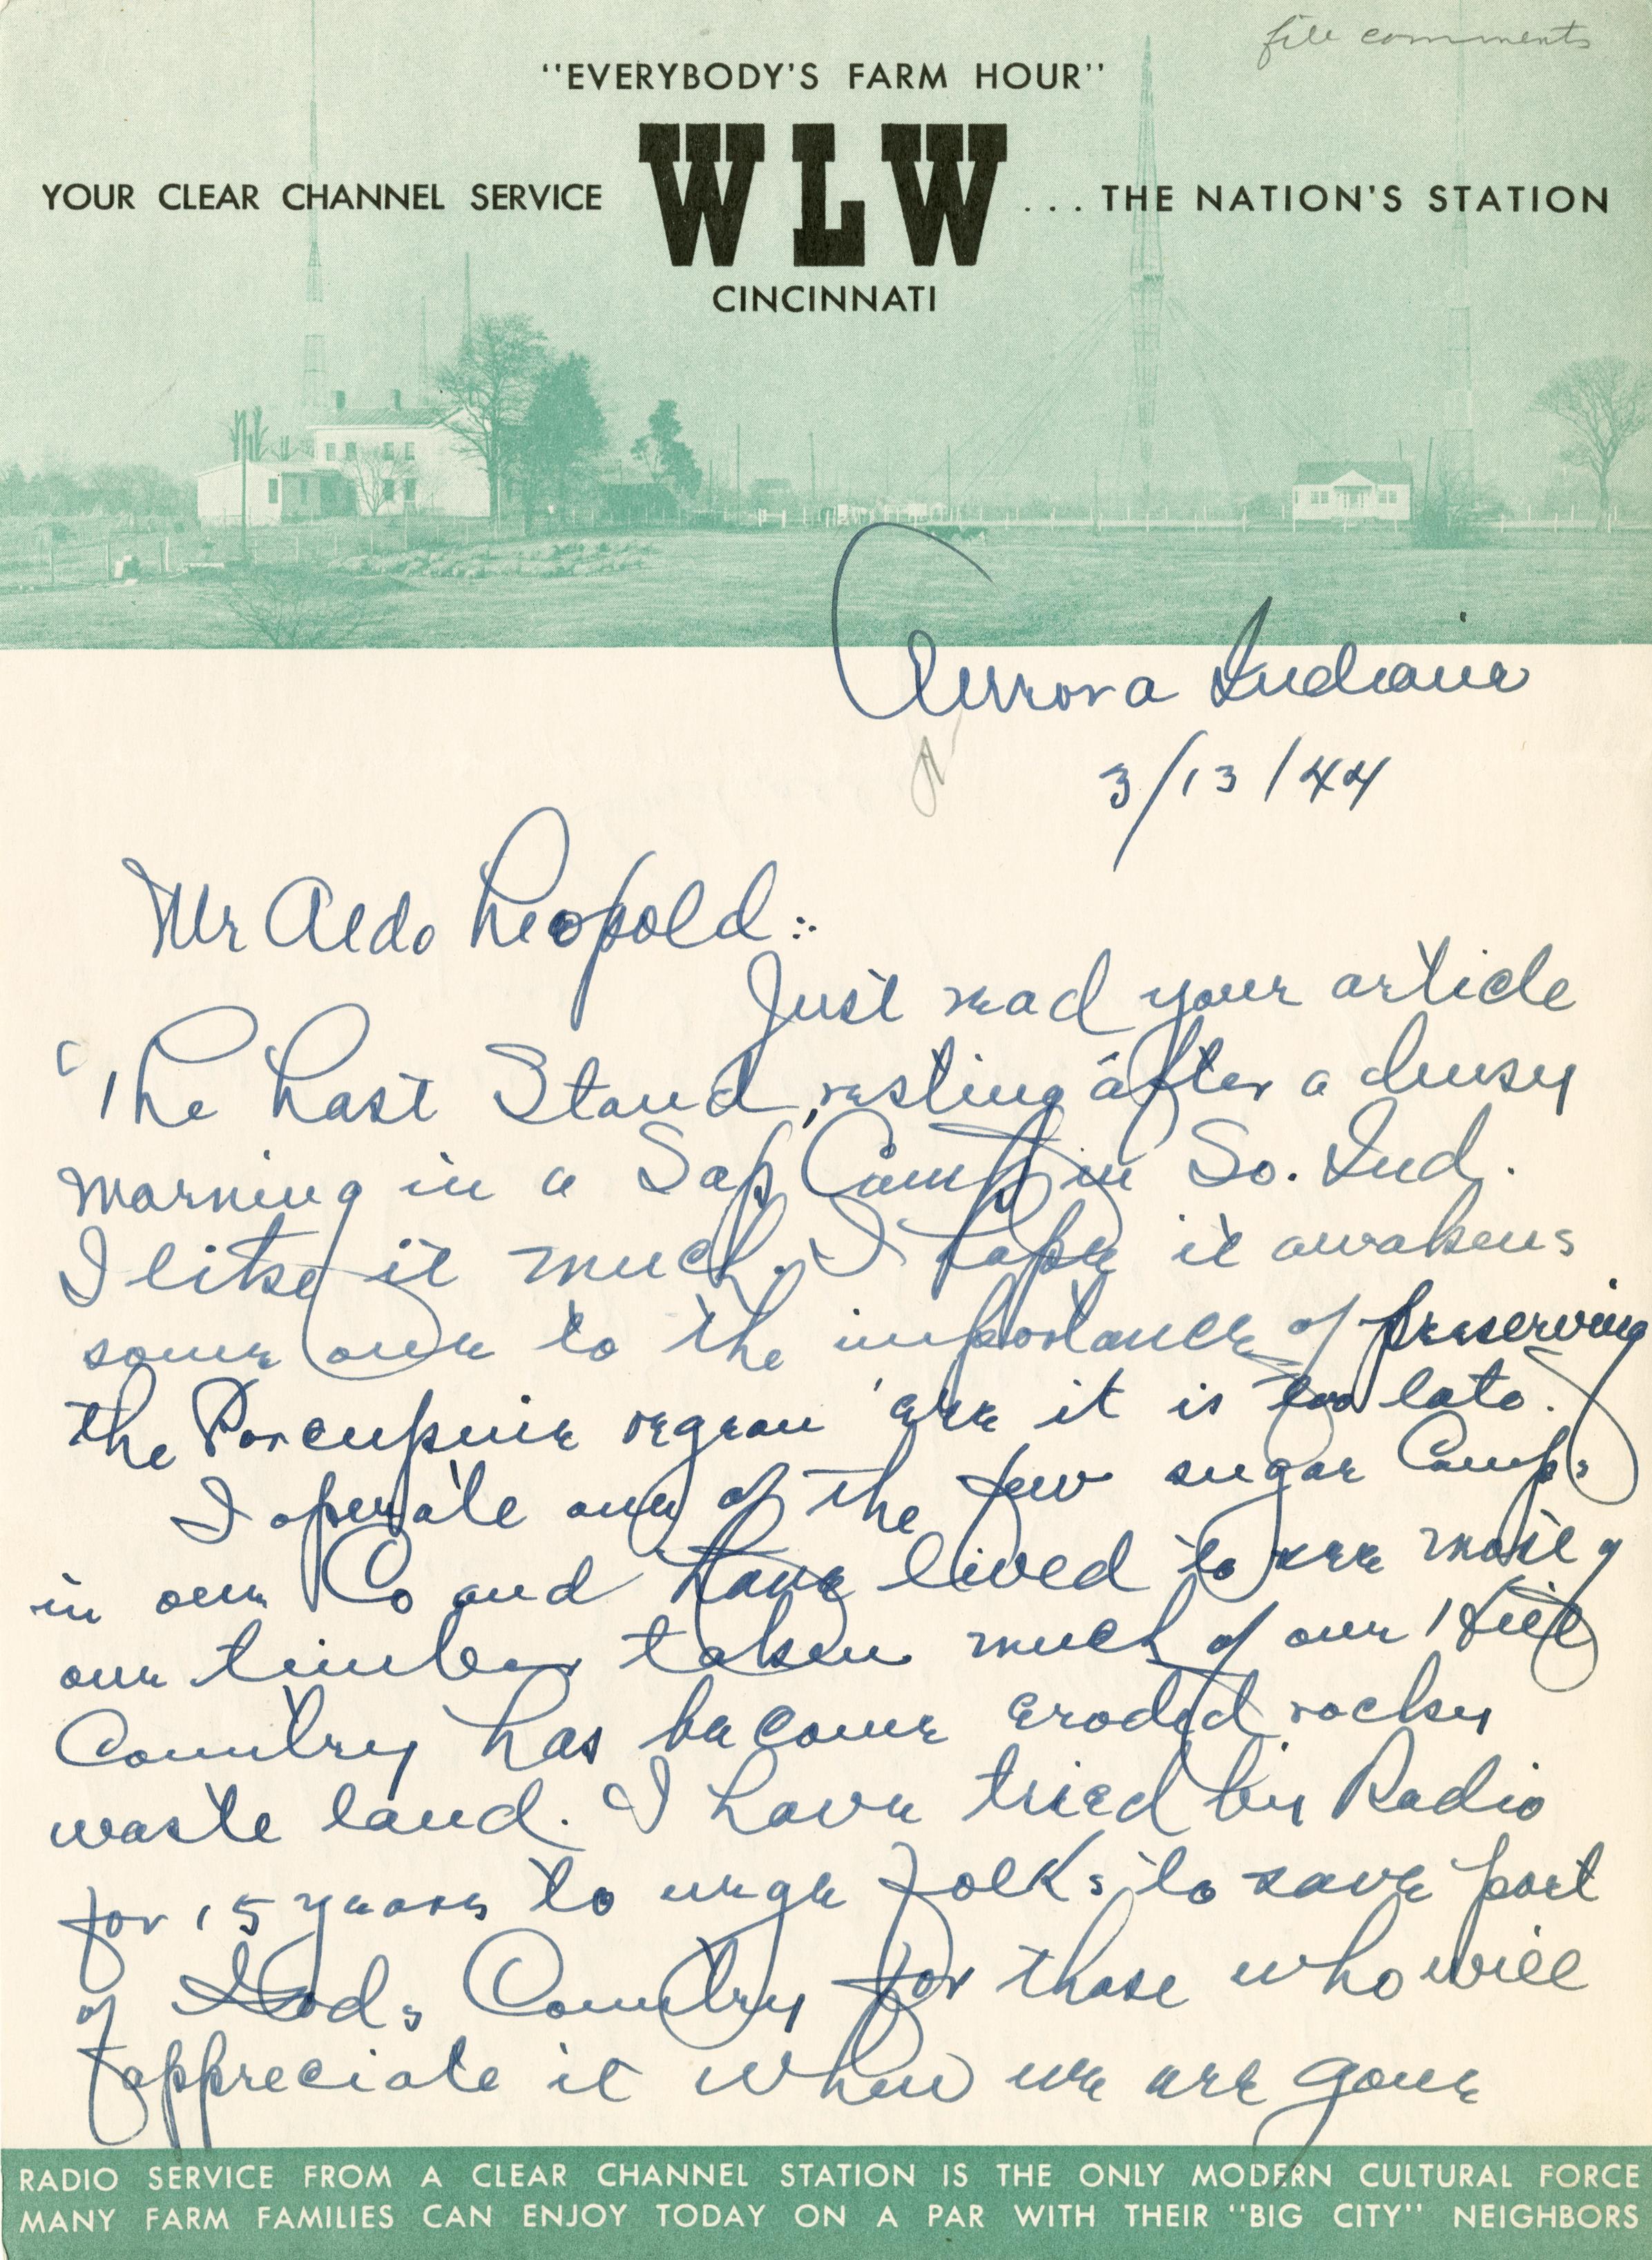 file comments
"EVERYBODY'S FARM HOUR"
YOUR CLEAR CHANNEL SERVICE WLW ... THE NATION'S STATION
CINCINNATI
Aurrora Indiana
3/13/44
Mr Aldo Leopold:
Just read your article
"The Last Stand, resting after a busy
morning in a Sap Camp in So. Ind.
I like it much. I hope it awakens
some one to the importance of preserving
the Porcupine regeon 'ere it is too late.
I operate one of the few sugar Camps
in our Co and have lived to see most of
our timber taken much of our Hill
Country has become eroded rocky
waste land. I have tried by Radio
for 15 years to urge folks to save part
of Gods Country for those who will
appreciate it when we are gone
RADIO SERVICE FROM A CLEAR CHANNEL STATION IS THE ONLY MODERN CULTURAL FORCE
MANY FARM FAMILIES CAN ENJOY TODAY ON A PAR WITH THEIR "BIG CITY" NEIGHBORS